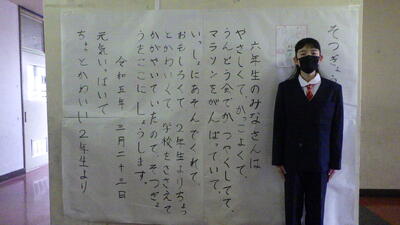 そつぎょ
六年生のみなさんは
やさしくて、かっこよくて、
うんどう会でかつやくしてて、
マラソンをがんばっていて、
いっしょにあそんでくれて、
おもしろくて、2年生よりちょっ
とかわいくて、学校をささえて
かがやいていたので、そつぎょ
うをここに しょうします。
令和五年 三月二十三日
元気いっぱいで
ちょとかわいい2年生より